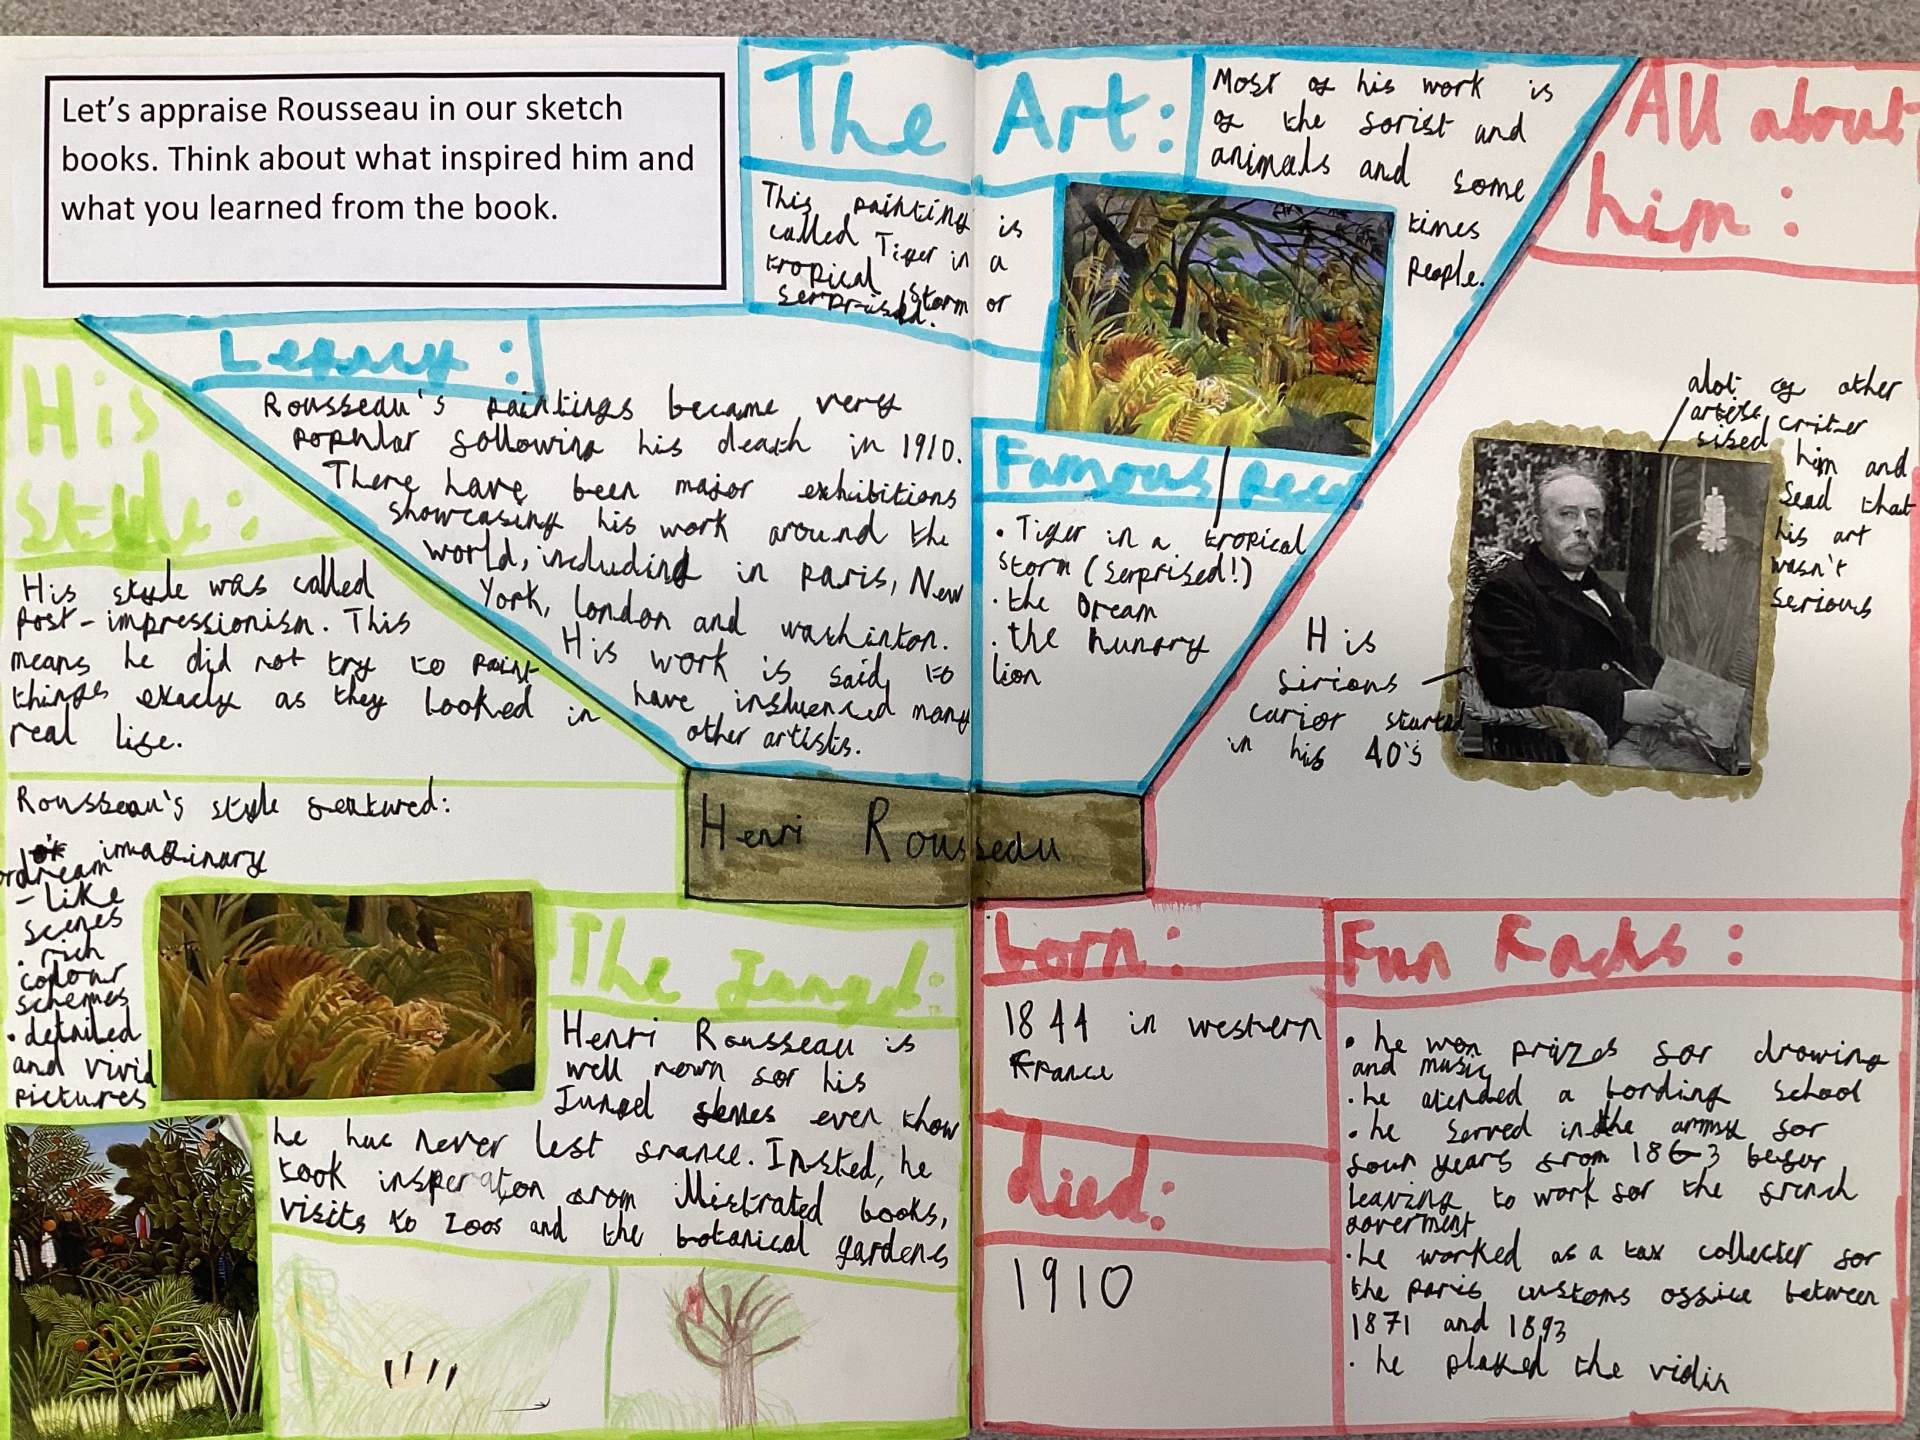 Let's appraise Rousseau in our sketch
books. Think about what inspired him and
what you learned from the book.
The Art:
Most of his work is
of the forist and
animals and some
times
People.
This painting is
called Tiger in a
tropical storm or
serprised.
All about
him:
alot of other
artists criter
sised him and
Sead that
his art
wasn't
serious
His
sirious
carior started
in his 40's
Legacy:
Rousseau's paintings became very
popular following his death in 1910.
There have been major exhibitions
showcasing his work around the
world, including in paris, New
York, london and washinton.
His work is said to
have influenced many
other artists.
Famous
• Tiger in a tropical
storm (Serprised!)
• the Dream
• the hungry
lion
His
style:
His style was called
Post-impressionism. This
means he did not try to paint
things exacly as they looked in
real life.
Rousseau's style featured:
imaginary
or dream
-like
scenes
• rich
colour
schemes
• detailed
and vivid
pictures
Henri Rousseau
The Jungel:
Henri Rousseau is
well nown for his
Jungel even thow
he has never left france. Insted, he
took insperation from illistrated books,
visits to zoos and the botanical gardens
born:
1844 in western
France
died:
1910
Fun Facts:
• he won prizes for drowing
and music
• he atended a bording school
• he served in the army for
four years from 1863 befor
leaving to work for the french
goverment
• he worked as a tax collecter for
the paris customs office between
1871 and 1893
• he played the violin